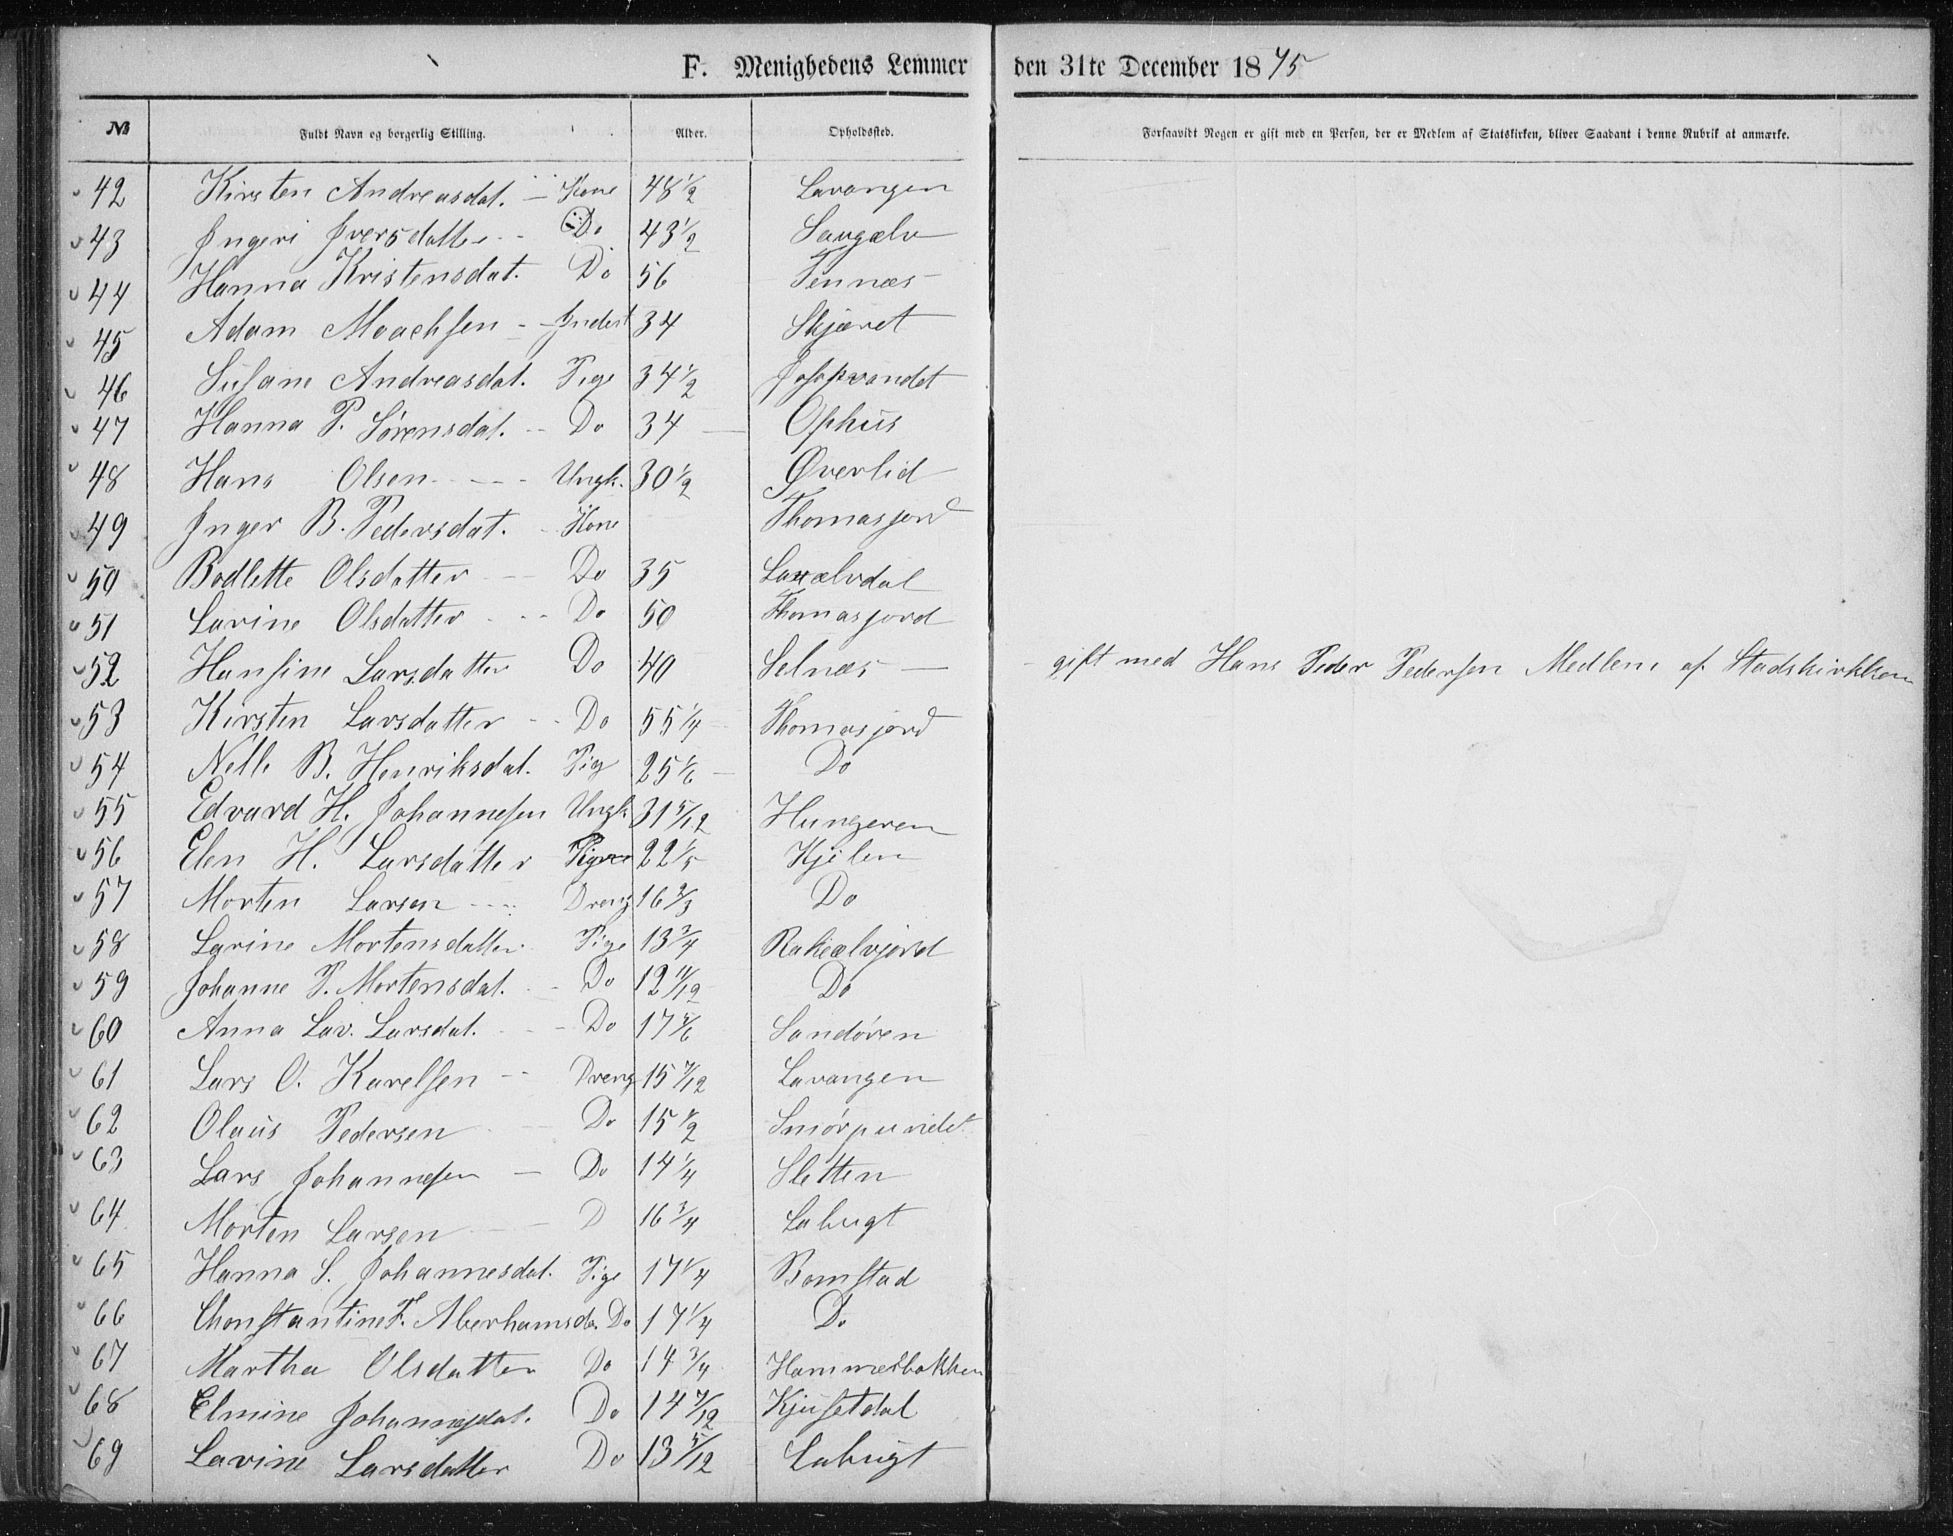 F. Menighedens Lemmer den 31te December 1875
No Fuldt Navn og borgerlig Stilling. Alder. Opholdssted. Forsaavidt Nogen er gift med en Person, der er Medlem af Statskirken, bliver Saadant i denne Rubrik at anmærke.
42 Kirsten Andreasdat. - Kone 48 1/2 Lavangen
43 Ingeri Iversdatter - Do 43 1/2 Saugælv
44 Hanna Kristensdat. Do 56 Tennæs
45 Adam Moachsen - Inderst 34 Skjæret
46 Susane Andreasdat. Pige 34 1/2 Josepvandet
47 Hanna P. Sørensdat. - Do 34 Ophus
48 Hans Olsen - Ungk. 30 1/2 Øverlid
49 Inger B. Pedersdat. - Kone Thomasjord
50 Bodlette Olsdatter - Do 35 Laxælvdal
51 Lavine Olsdatter - Do 50 Thomasjord
52 Hansine Larsdatter Do 40 Selnæs - gift med Hans Peder Pedersen Medlem af Stadskirkken
53 Kirsten Larsdatter - Do 55 1/4 Thomasjord
54 Nelle B. Henriksdat. Pig 25 1/6 Do
55 Edvard H. Johannesen Ungk. 31 5/12 Hungeren
56 Elen H. Larsdatter Pige 22 1/5 Kjelen
57 Morten Larsen - Dreng 16 2/3 Do
58 Lavine Mortensdatter Pige 13 3/4 Rakeælvjord
59 Johanne P. Mortensdat. - Do 12 11/12 Do
60 Anna Lav. Larsdat. - Do 17 5/6 Sandøren
61 Lars O. Karelsen - Dreng 15 7/12 Lavangen
62 Olaus Pedersen Do 15 1/2 Smørpundet
63 Lars Johannesen - Do 14 1/4 Sletten
64 Morten Larsen - D 16 3/4 Labugt
65 Hanna S. Johannesdat. Pige 17 1/4 Bomstad
66 Chonstantine F. Aberhamsda. Do 17 1/4 Do
67 Martha Olsdatter Do 14 3/4 Hammerbakken
68 Elmine Johannesdat. Do 14 7/12 Kjusetdal
69 Lavine Larsdatter Do 13 5/12 Labugt